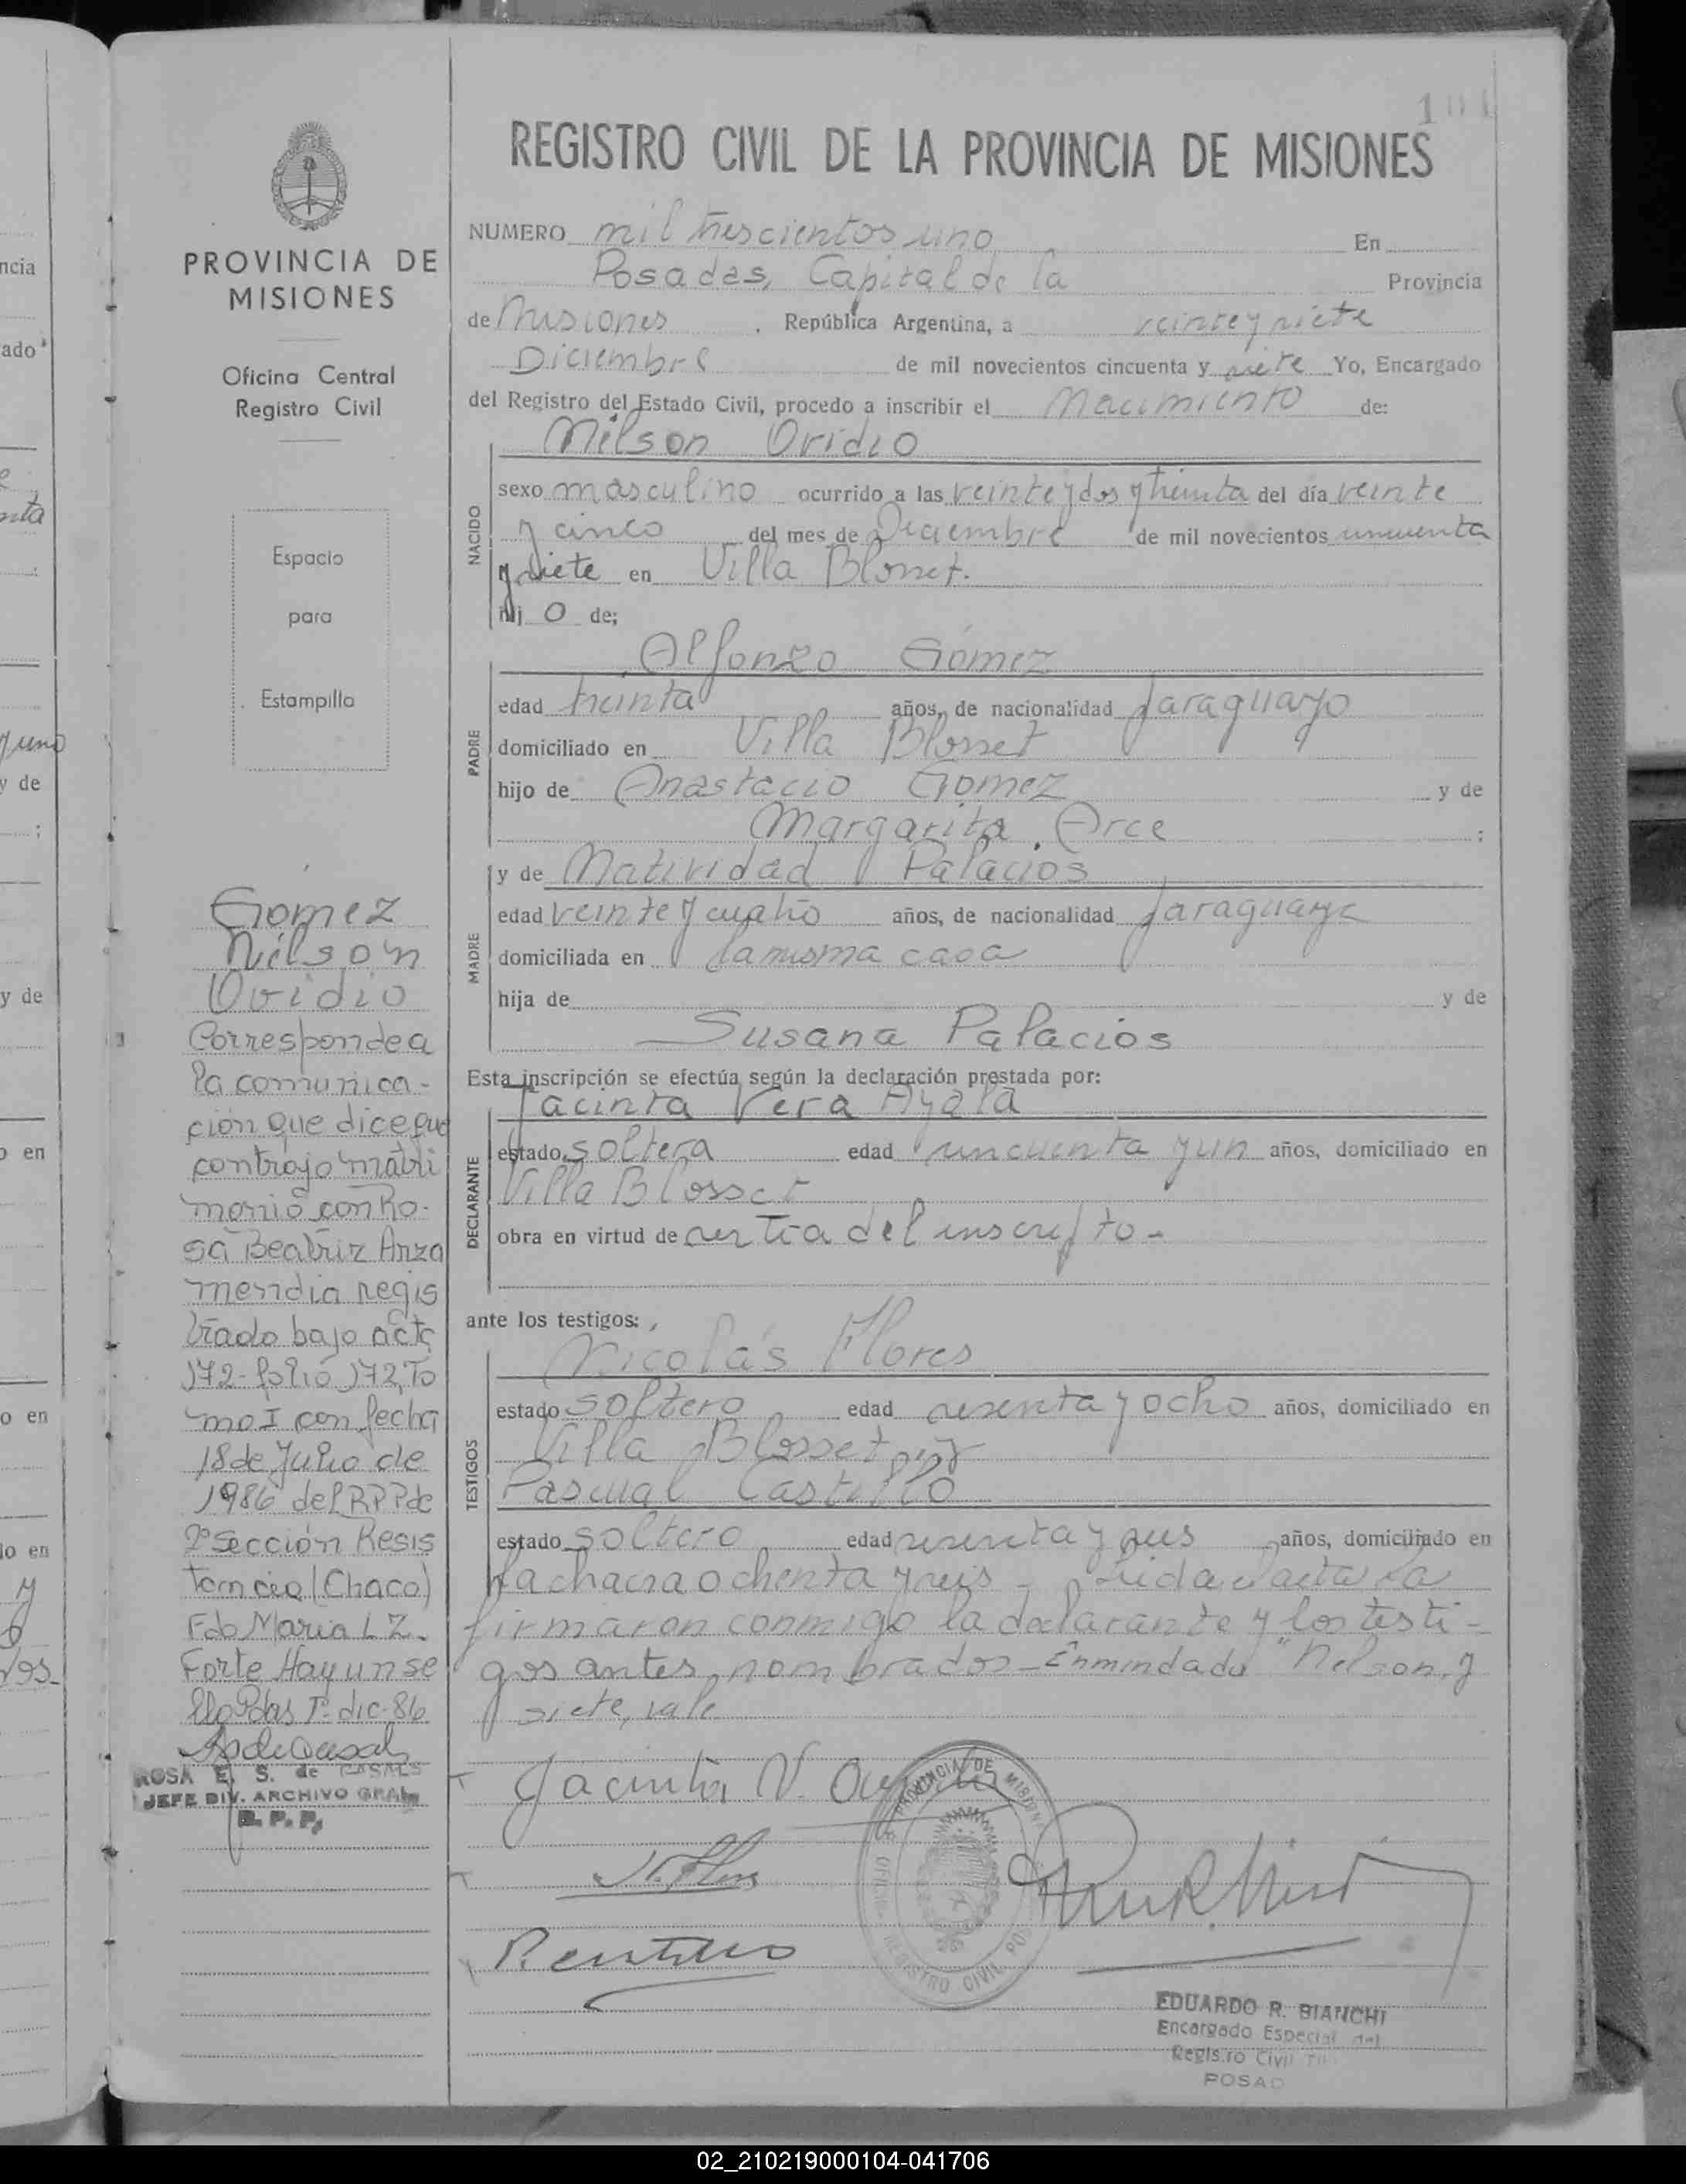 101
REGISTRO CIVIL DE LA PROVINCIA DE MISIONES
NUMERO mil trescientos uno En
Posadas, Capital de la Provincia
de Misiones, República Argentina, a veinte y siete
Diciembre de mil novecientos cincuenta y siete Yo, Encargado
del Registro del Estado Civil, procedo a inscribir el Nacimiento de:
Nelson Ovidio
NACIDO
sexo masculino ocurrido a las veinte y dos y treinta del día veinte
y cinco del mes de Diciembre de mil novecientos cincuenta
y siete en Villa Blosset.
hij o de;
PADRE
Alfonzo Gómez
edad treinta años, de nacionalidad paraguayo
domiciliado en Villa Blosset
hijo de Anastacio Gomez y de
Margarita Arce ;
MADRE
y de Natividad Palacios
edad veinte y cuatro años, de nacionalidad paraguaya
domiciliada en la misma casa
hija de y de
Susana Palacios
Esta inscripción se efectúa según la declaración prestada por:
DECLARANTE
Jacinta Vera Ayala
estado soltera edad cincuenta y un años, domiciliado en
Villa Blosset
obra en virtud de ser tía del inscripto -
ante los testigos:
TESTIGOS
Nicolás Flores
estado soltero edad sesenta y ocho años, domiciliado en
Villa Blosset y
Pascual Castillo
estado soltero edad sesenta y seis años, domiciliado en
la chacra ochenta y seis - Leida el acta la
firmaron conmigo la declarante y los testi-
gos antes nombrados - Enmendado "Nelson, y
siete, vale
Jacinta V. Ayala
N. Flores
P. Castillo
PROVINCIA DE MISIONES
REGISTRO CIVIL
EDUARDO R. BIANCHI
Encargado Especial del
Registro Civil
POSAD
PROVINCIA DE
MISIONES
Oficina Central
Registro Civil
Espacio
para
Estampilla
Gomez
Nelson
Ovidio
Corresponde a
la comunica-
ción que dice que
contrajo matri
monio con Ro-
sa Beatriz Arza
mendia regis
trado bajo acta
172 - folio 172, To
mo I con fecha
18 de Julio de
1986 del RPP de
2º Sección Resis
tencia (Chaco)
Fdo Maria L Z.
Forte Hay un se
llo Pdas 1º-dic-86
ROSA E. S. de CASALS
JEFE DIV. ARCHIVO GRAL
R. P. P.
ncia
ado
y uno
y de
y de
o en
o en
lo en
y
02_210219000104-041706